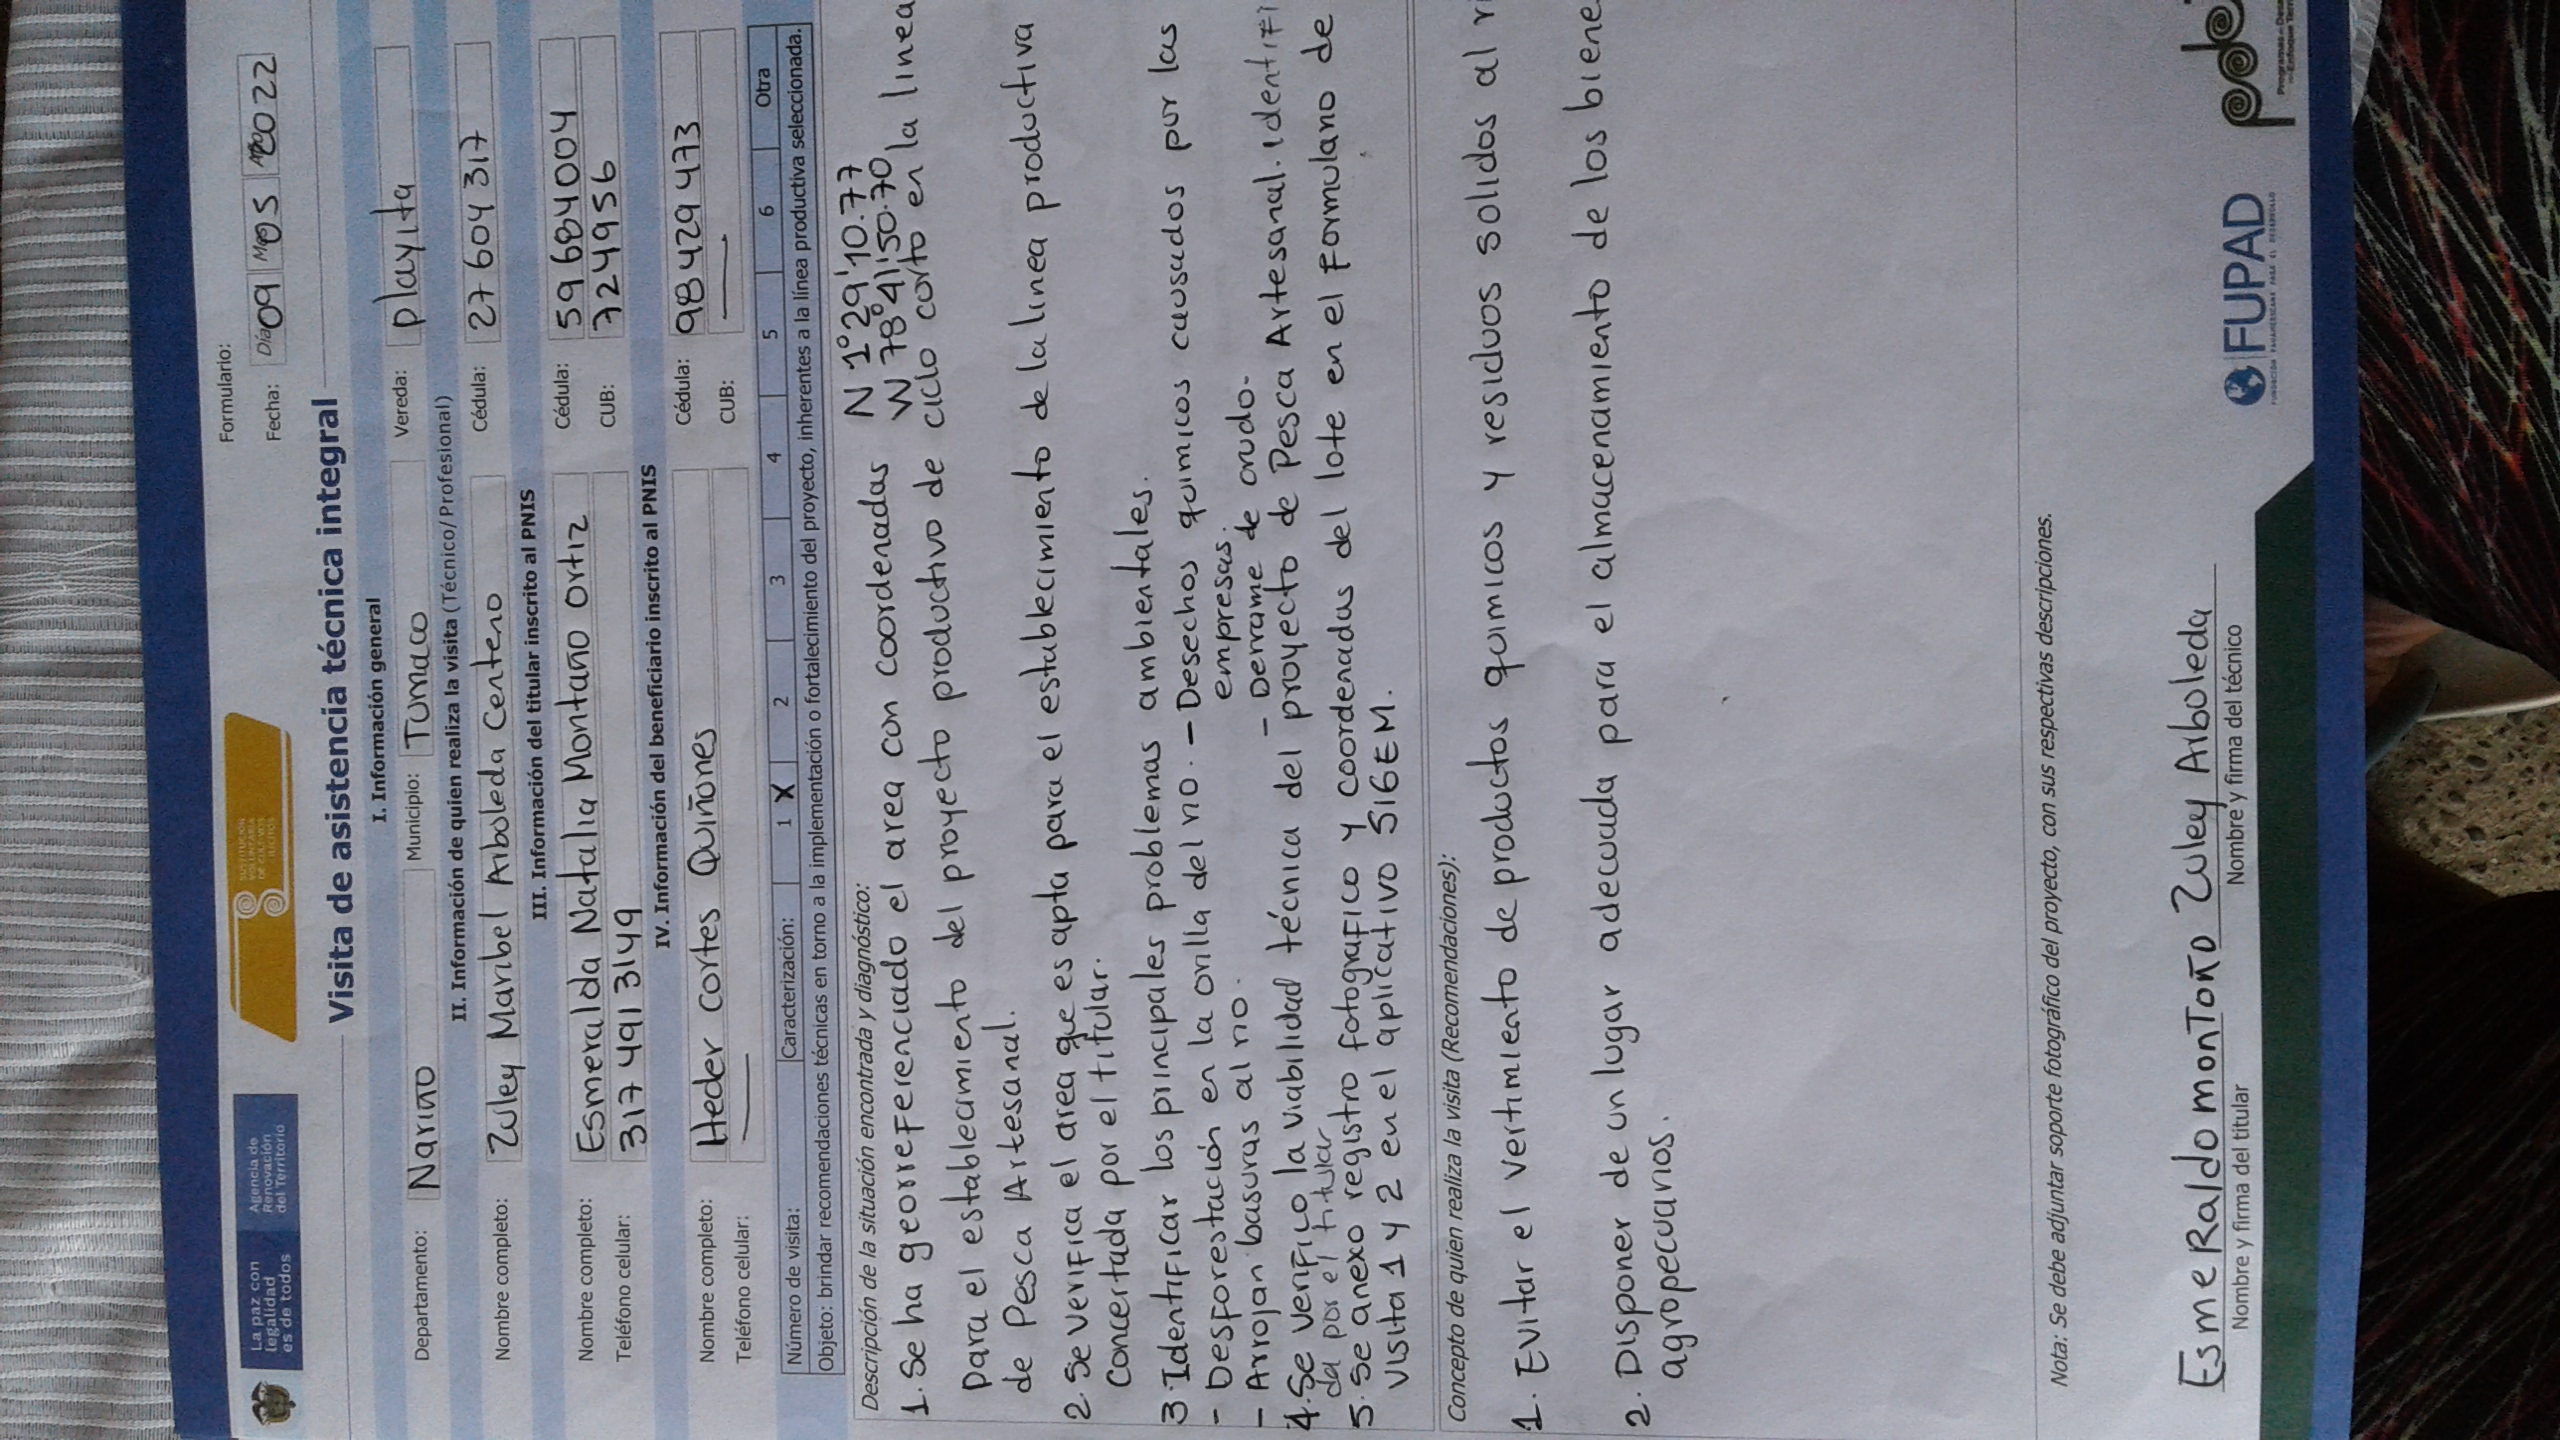 La paz con
legalidad
es de todos
Agencia de
Renovación
del Territorio
SUSTITUCIÓN
VOLUNTARIA
DE CULTIVOS
ILÍCITOS
Formulario:
Fecha: Día 09 Mes 05 2022
Visita de asistencia técnica integral
I. Información general
Departamento: Nariño Municipio: Tumaco Vereda: playita
II. Información de quien realiza la visita (Técnico/Profesional)
Nombre completo: Zuley Maribel Arboleda Centeno Cédula: 27 604 317
III. Información del titular inscrito al PNIS
Nombre completo: Esmeralda Natalia Montaño Ortiz Cédula: 59 684 004
Teléfono celular: 317 491 3149 CUB: 724956
IV. Información del beneficiario inscrito al PNIS
Nombre completo: Heder cortes Quiñones Cédula: 98 429 473
Teléfono celular: — CUB: —
Número de visita: Caracterización: 1 X 2 3 4 5 6 Otra
Objeto: brindar recomendaciones técnicas en torno a la implementación o fortalecimiento del proyecto, inherentes a la línea productiva seleccionada.
Descripción de la situación encontrada y diagnóstico:
1. Se ha georreferenciado el area con coordenadas N 1°29'10.77
W 78°41'50.70
para el establecimiento del proyecto productivo de ciclo corto en la linea
de Pesca Artesanal.
2. Se verifica el area que es apta para el establecimiento de la linea productiva
Concertada por el titular.
3. Identificar los principales problemas ambientales.
- Desforestación en la orilla del rio. - Desechos quimicos causados por las
empresas.
- Arrojan basuras al rio. - Derrame de crudo.
4. Se verifico la viabilidad técnica del proyecto de Pesca Artesanal. identifi
da por el titular
5. Se anexo registro fotografico y coordenadas del lote en el Formulario de
visita 1 y 2 en el aplicativo SIGEM.
Concepto de quien realiza la visita (Recomendaciones):
1. Evitar el vertimiento de productos quimicos y residuos solidos al ri
2. Disponer de un lugar adecuada para el almacenamiento de los biene
agropecuarios.
Nota: Se debe adjuntar soporte fotográfico del proyecto, con sus respectivas descripciones.
EsmeRaldo monToño Zuley Arboleda
Nombre y firma del titular Nombre y firma del técnico
FUPAD
FUNDACIÓN PANAMERICANA PARA EL DESARROLLO
pdet